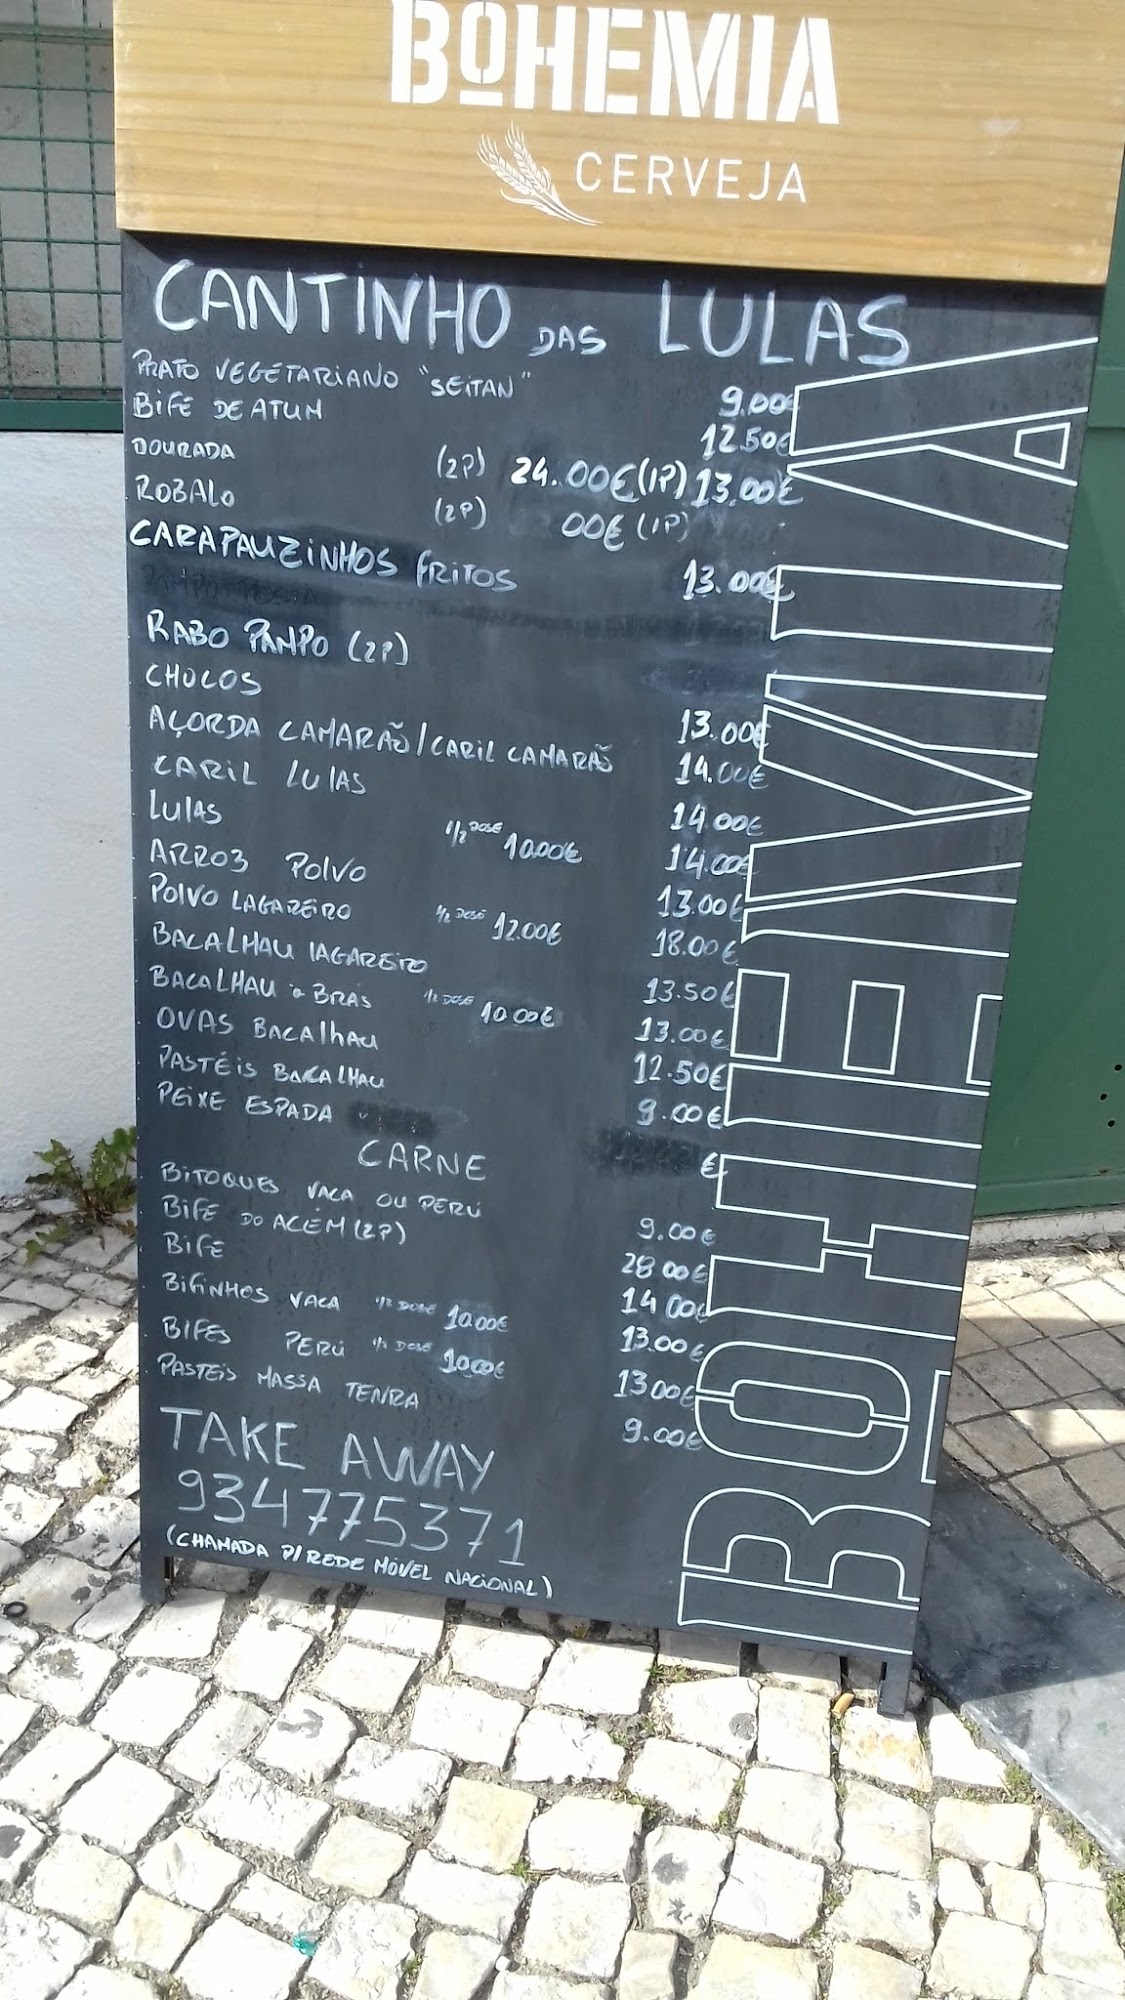 BOHEMIA
CERVEJA
CANTINHO DAS LULAS
PRATO VEGETARIANO "SEITAN" 9.00€
BIFE DE ATUM 12.50€
DOURADA (2P) 24.00€ (1P) 13.00€
ROBALO (2P) 00€ (1P)
CARAPAUZINHOS FRITOS 13.00€
RABO PAMPO (2P)
CHOCOS 13.00€
AÇORDA CAMARÃO/CARIL CAMARÃO 14.00€
CARIL LULAS 14.00€
LULAS 1/2 DOSE 10.00€ 14.00€
ARROZ POLVO 13.00€
POLVO LAGAREIRO 1/2 DOSE 12.00€ 18.00€
BACALHAU LAGAREIRO 13.50€
BACALHAU à BRÁS 1/2 DOSE 10.00€ 13.00€
OVAS BACALHAU 12.50€
PASTÉIS BACALHAU 9.00€
PEIXE ESPADA €
CARNE
BITOQUES VACA OU PERÚ 9.00€
BIFE DO ACÉM (2P) 28.00€
BIFE 14.00€
BIFINHOS VACA 1/2 DOSE 10.00€ 13.00€
BIFES PERÚ 1/2 DOSE 10.00€ 13.00€
PASTÉIS MASSA TENRA 9.00€
TAKE AWAY
934775371
(CHAMADA P/REDE MÓVEL NACIONAL)
BOHEMIA